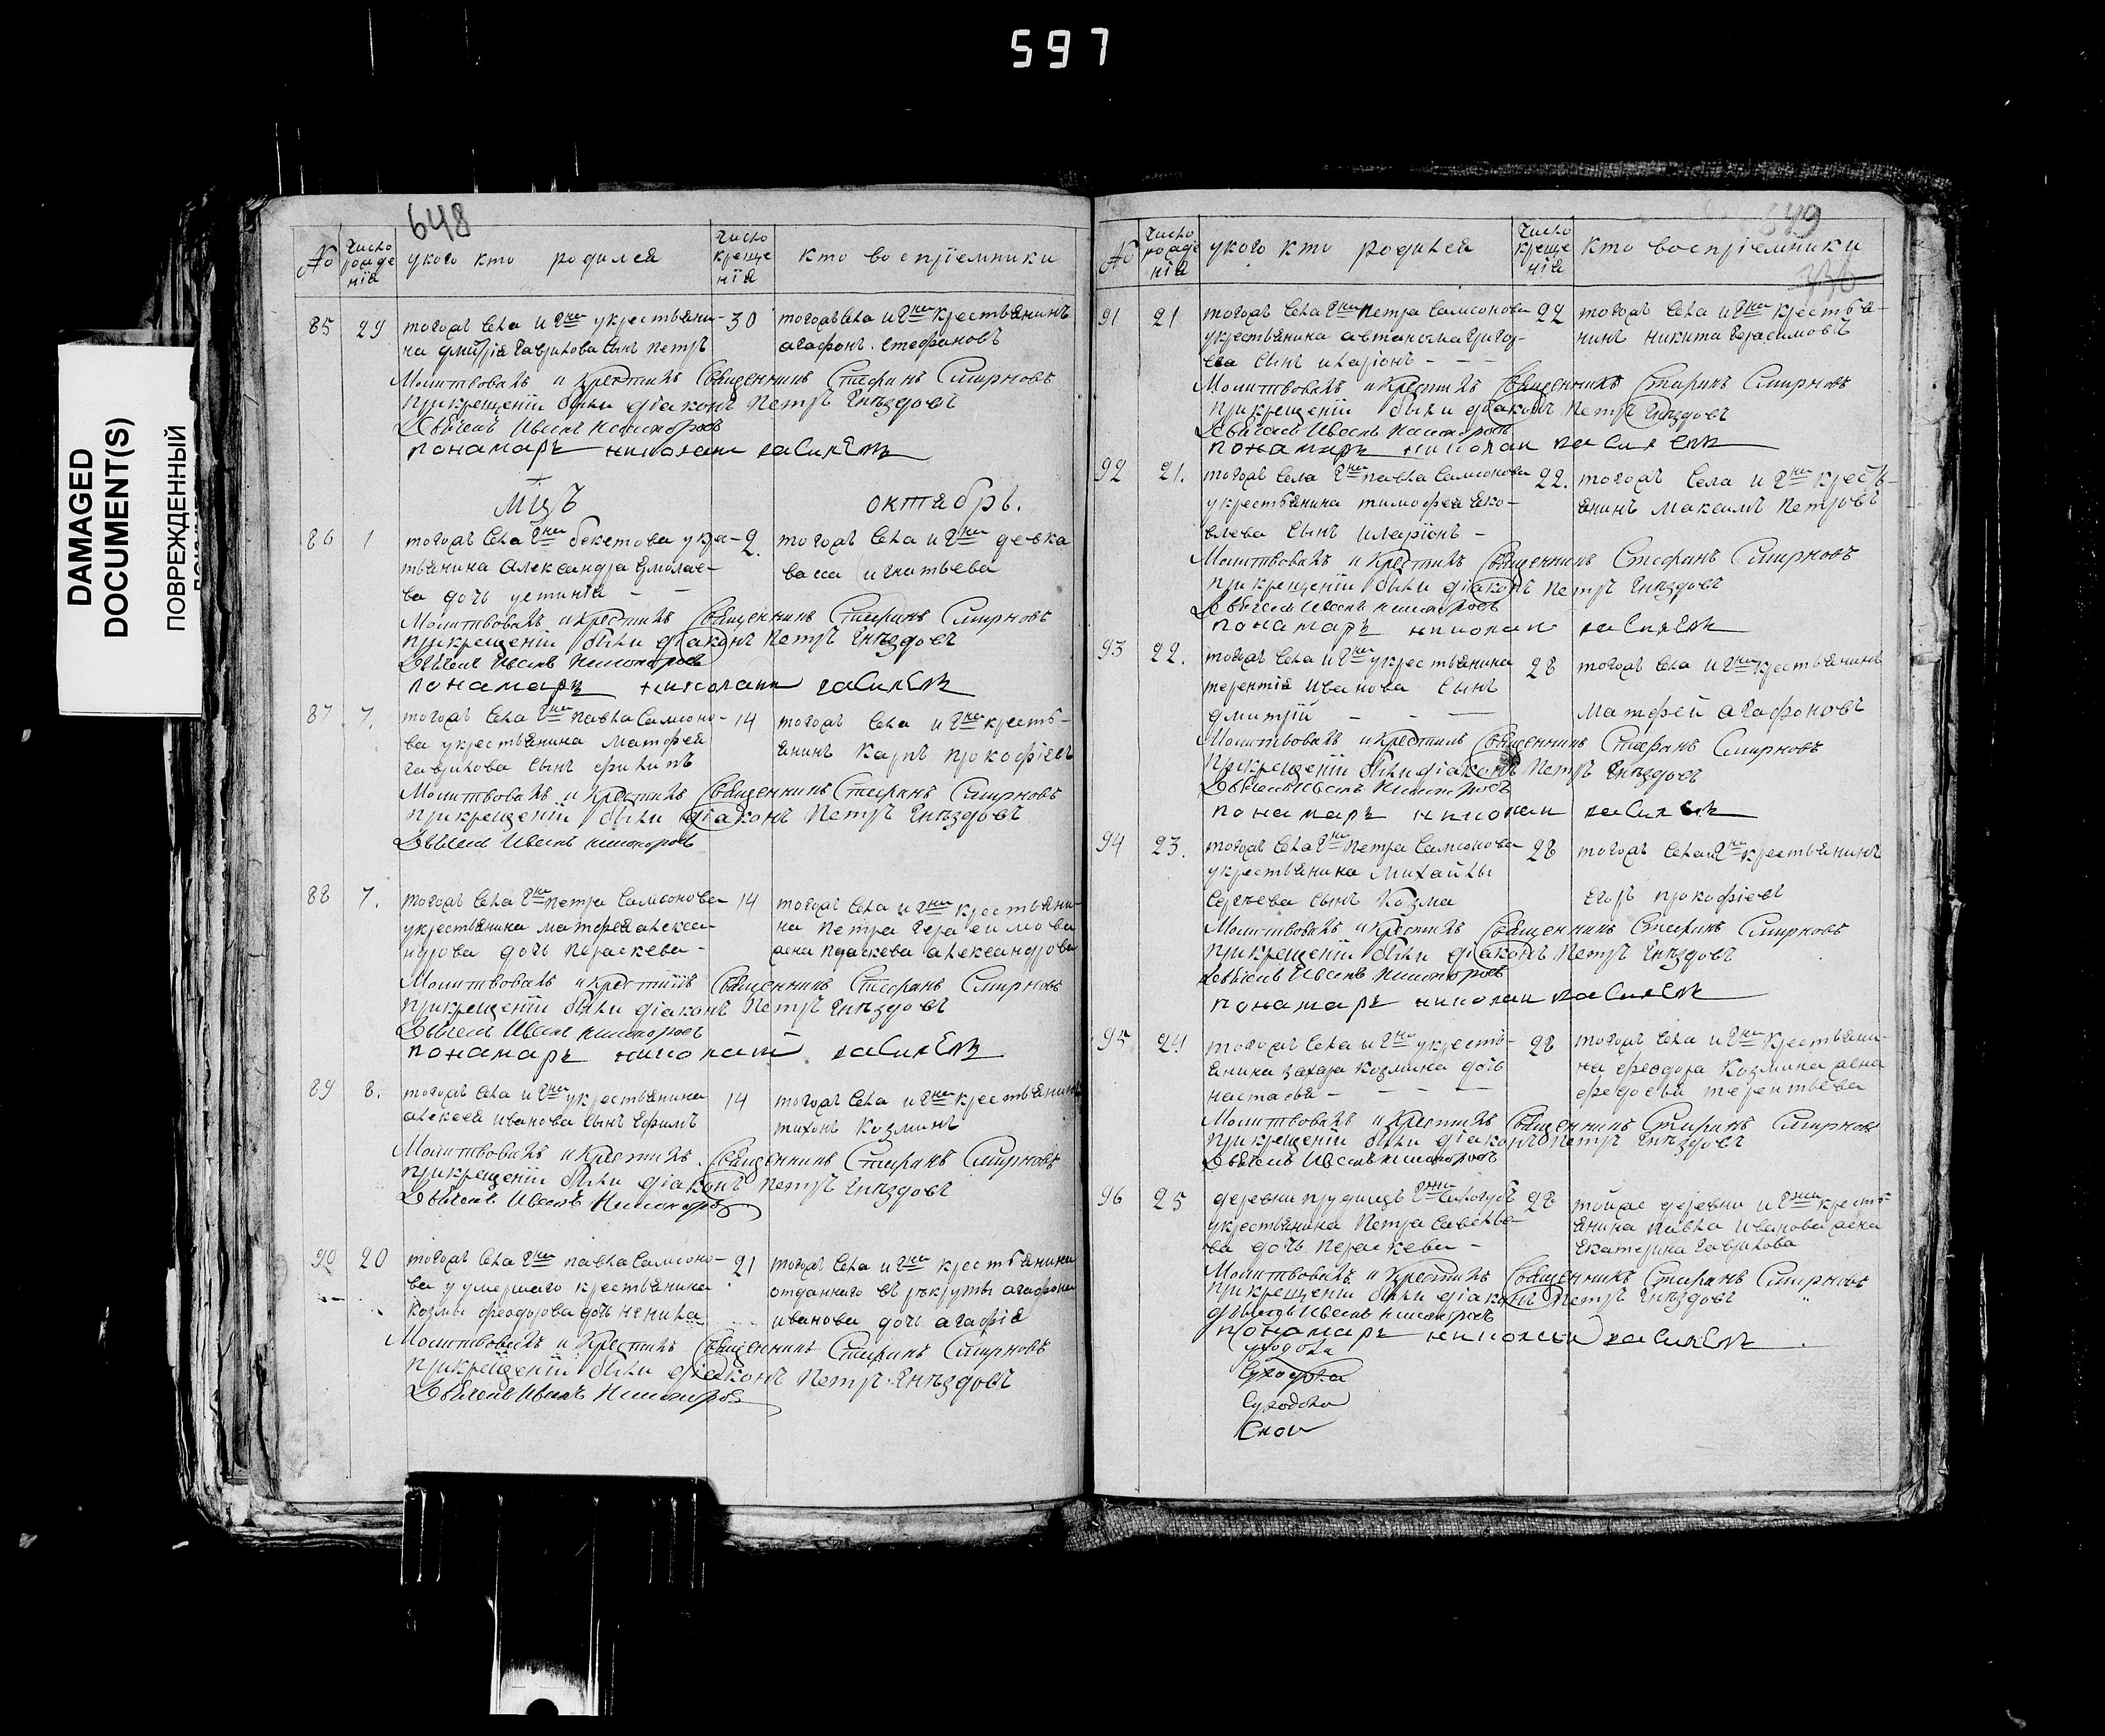 597
DAMAGED
DOCUMENT(S)
ПОВРЕЖДЕННЫЙ
648
№
Число рожденїя
у кого кто родился
Число крещенїя
кто воспрїемники
85 29 тогожъ села и Г-жи у крестьяни-
на Дмитрїя Гаврилова сынъ Петръ
30 тогожъ села и Г-жи крестьянинъ
агафонъ стефановъ
Молитвовалъ и Крестилъ Священникъ Стефанъ Смирновъ
При крещенїи были дїаконъ Петръ Гнѣздовъ
Дьячекъ Иванъ Никифоровъ
понамарь николай василевъ
Мцъ октябрь.
86 1 тогожъ села Г-жи бекетова у кре-
стьянина Александра Ермолае-
ва дочь устинїя
2. тогожъ села и Г-жи девка
васса игнатьева
Молитвовалъ и Крестилъ Священникъ Стефанъ Смирновъ
при крещенїи были дїаконъ Петръ Гнѣздовъ
Дьячекъ Иванъ Никифоровъ
понамарь николаи василевъ
87 7. тогожъ села Г-на павла Самсоно-
ва у крестьянина Матфея
Гаврилова сынъ филипъ
14 тогожъ села и Г-на кресть-
янинъ Карпъ прокофїевъ
Молитвовалъ и Крестилъ Священникъ Стефанъ Смирновъ
при крещенїи были дїаконъ Петръ Гнѣздовъ
Дьячекъ Иванъ никифоровъ
88 7. тогожъ села Г-на петра Самсонова
у крестьянина матфея алекса-
ндрова дочь Пераскева
14 тогожъ села и Г-на крестьяни-
на Петра Герасимова
жена параскева александрова
Молитвовалъ и Крестилъ Священникъ Стефанъ Смирновъ
при крещенїи были дїаконъ Петръ Гнѣздовъ
Дьячекъ Иванъ никифоровъ
понамарь николай василевъ
89 8. тогожъ села и Г-на у крестьянина
алексея иванова сынъ Ефимъ
14 тогожъ села и Г-на крестьянинъ
тихонъ Козминъ
Молитвовалъ и Крестилъ Священникъ Стефанъ Смирновъ
при крещенїи были дїаконъ Петръ Гнѣздовъ
Дьячекъ Иванъ Никифоровъ
90 20 тогожъ села Г-на павла Самсоно-
ва у умершаго крестьянина
Козмы феодорова дочь неница
21 тогожъ села и Г-на крестьянина
отданнаго въ рѣкруты агафона
иванова дочь агафїя
Молитвовалъ и Крестилъ Священникъ Стефанъ Смирновъ
при крещенїи были дїаконъ Петръ Гнѣздовъ
Дьячекъ Иванъ Никифоровъ
649
№
Число рожденїя
у кого кто родился
Число крещенїя
кто воспрїемники
91 21 тогожъ села Г-на Петра Самсонова
у крестьянина автанома Григор-
ева сынъ иларїонъ
22 тогожъ села и Г-на крестья-
нинъ никита Герасимовъ
Молитвовалъ и Крестилъ Священникъ Стефанъ Смирновъ
При крещенїи были дїаконъ Петръ Гнѣздовъ
Дьячекъ Иванъ Никифоровъ
понамарь николаи василевъ
92 21. тогожъ села Г-на павла Самсонова
у крестьянина тимофея яко-
влева сынъ иларїонъ
22. тогожъ села и Г-на кресть-
янинъ Максимъ Петровъ
Молитвовалъ и Крестилъ Священникъ Стефанъ Смирновъ
при крещенїи были дїаконъ Петръ Гнѣздовъ
Дьячекъ Иванъ никифоровъ
понамарь николаи василевъ
93 22. тогожъ села и Г-на у крестьянина
терентїя Иванова сынъ
Дмитрїй
28 тогожъ села и Г-на крестьянинъ
Матфей агафоновъ
Молитвовалъ и Крестилъ Священникъ Стефанъ Смирновъ
При крещенїи были дїаконъ Петръ Гнѣздовъ
Дьячекъ Иванъ Никифоровъ
понамарь николаи василевъ
94 23. тогожъ села Г-на петра Самсонова
у крестьянина Михайлы
Сергѣева сынъ Козма
28 тогожъ села и Г-на крестьянинъ
Егоръ прокофїевъ
Молитвовалъ и Крестилъ Священникъ Стефанъ Смирновъ
при крещенїи были дїаконъ Петръ Гнѣздовъ
Дьячекъ Иванъ Никифоровъ
понамарь николаи василевъ
95 24 тогожъ села и Г-на у кресть-
янина захара Козмина дочь
настасья
28 тогожъ села и Г-на Крестьяни-
на феодора Козмина жена
федосья терентьева
Молитвовалъ и Крестилъ Священникъ Стефанъ Смирновъ
При крещенїи были дїаконъ Петръ Гнѣздовъ
Дьячекъ Иванъ никифоровъ
96 25 деревни прудищъ Г-жи
у крестьянина Петра савелье-
ва дочь Пераскева
28 тойже деревни и Г-жи кресть-
янина павла Иванова жена
Екатерина Гаврилова
Молитвовалъ и Крестилъ Священникъ Стефанъ Смирновъ
При крещенїи были дїаконъ Петръ Гнѣздовъ
дьячекъ Иванъ никифоровъ
понамарь николаи василевъ